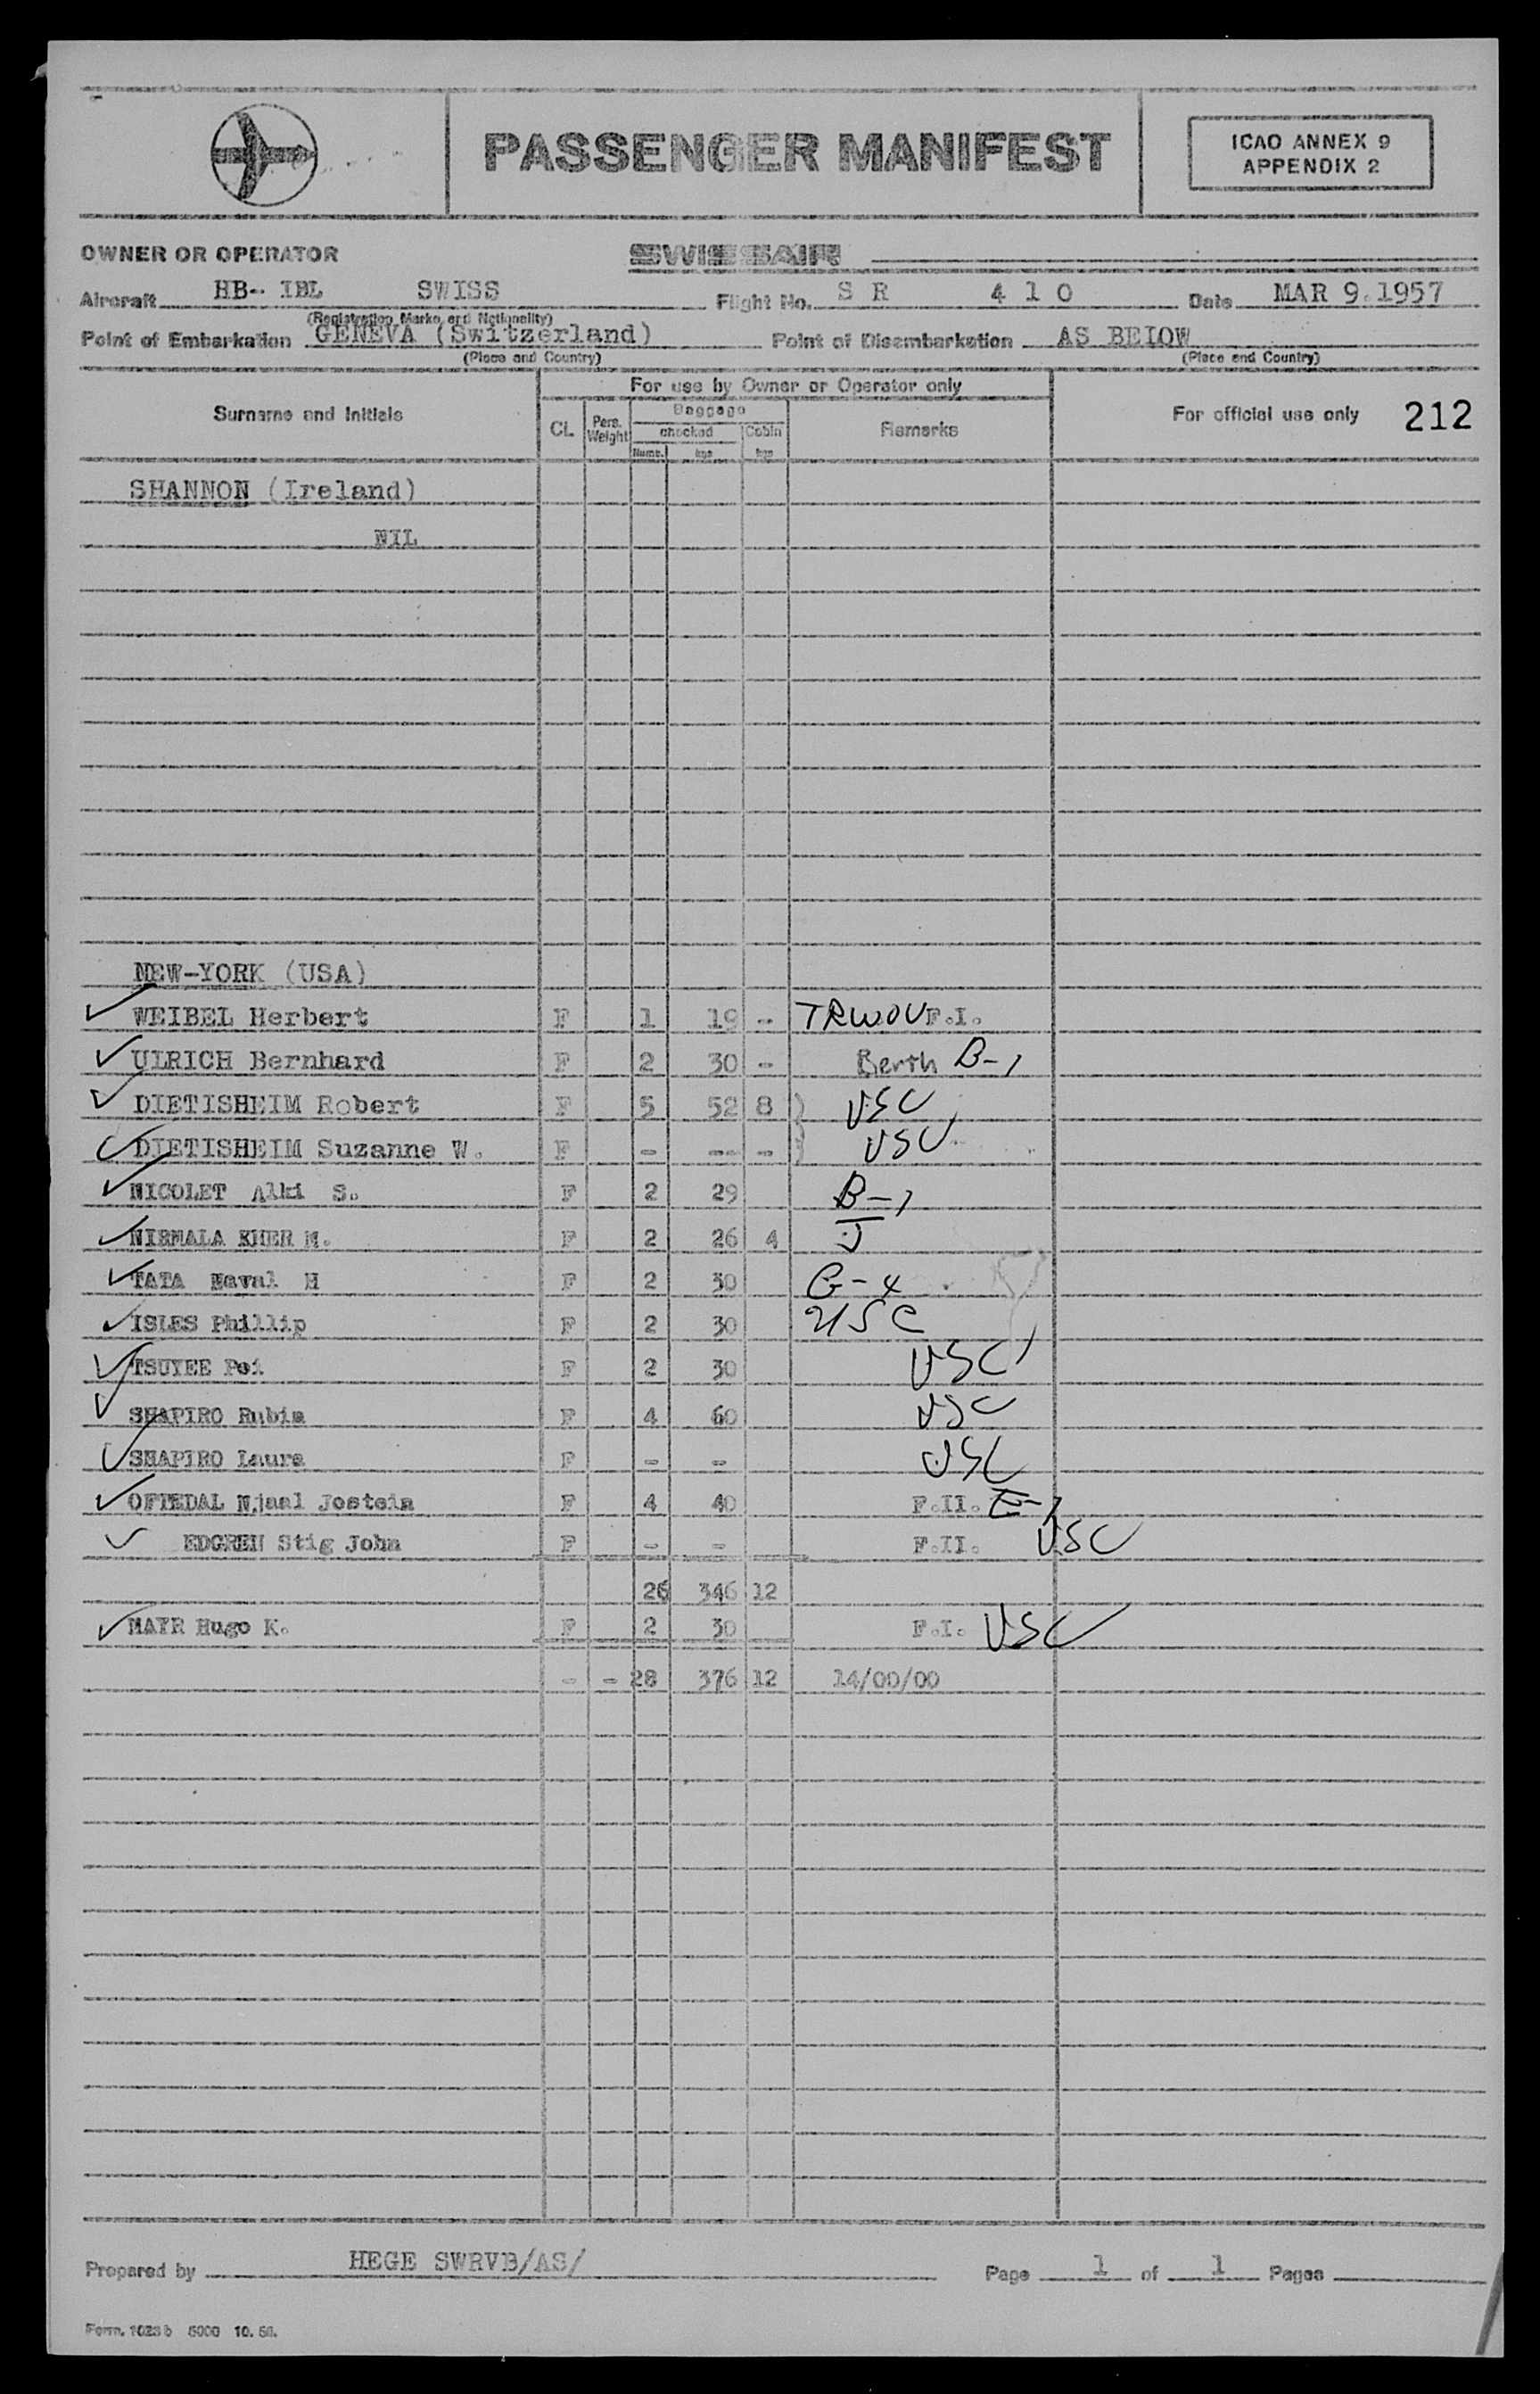 PASSENGER MANIFEST
ICAO ANNEX 9
APPENDIX 2
OWNER OR OPERATOR SWISSAIR
Aircraft HB- IBL SWISS Flight No. S R 4 1 0 Date MAR 9.1957
(Registration Marks and Nationality)
Point of Embarkation GENEVA (Switzerland) Point of Disembarkation AS BELOW
(Place and Country) (Place and Country)
For use by Owner or Operator only
Surname and Initials CL. Pers. Weight Baggage checked Numb. kgs Cabin kgs Remarks For official use only 212
SHANNON (Ireland)
NIL
NEW-YORK (USA)
WEIBEL Herbert F 1 19 - TRWOV F.I.
ULRICH Bernhard F 2 30 - Berth B-1
DIETISHEIM Robert F 5 52 8 ) USC
DIETISHEIM Suzanne W. F - -- - ) USC
NICOLET Alki S. F 2 29 B-1
NIRMALA KHER M. F 2 26 4 J
TATA Naval H F 2 30 G-4
ISLES Phillip F 2 30 USC
TSUYEE Pei F 2 30 USC
SHAPIRO Rubin F 4 60 USC
SHAPIRO Laura F - - USC
OFTEDAL Njaal Jostein F 4 40 F.II. E-1
EDGREN Stig John F - - F.II. USC
26 346 12
MAYR Hugo K. F 2 30 F.I. USC
- - 28 376 12 14/00/00
Prepared by HEGE SWRVB/AS/ Page 1 of 1 Pages
Form. 1023 b 5000 10. 56.